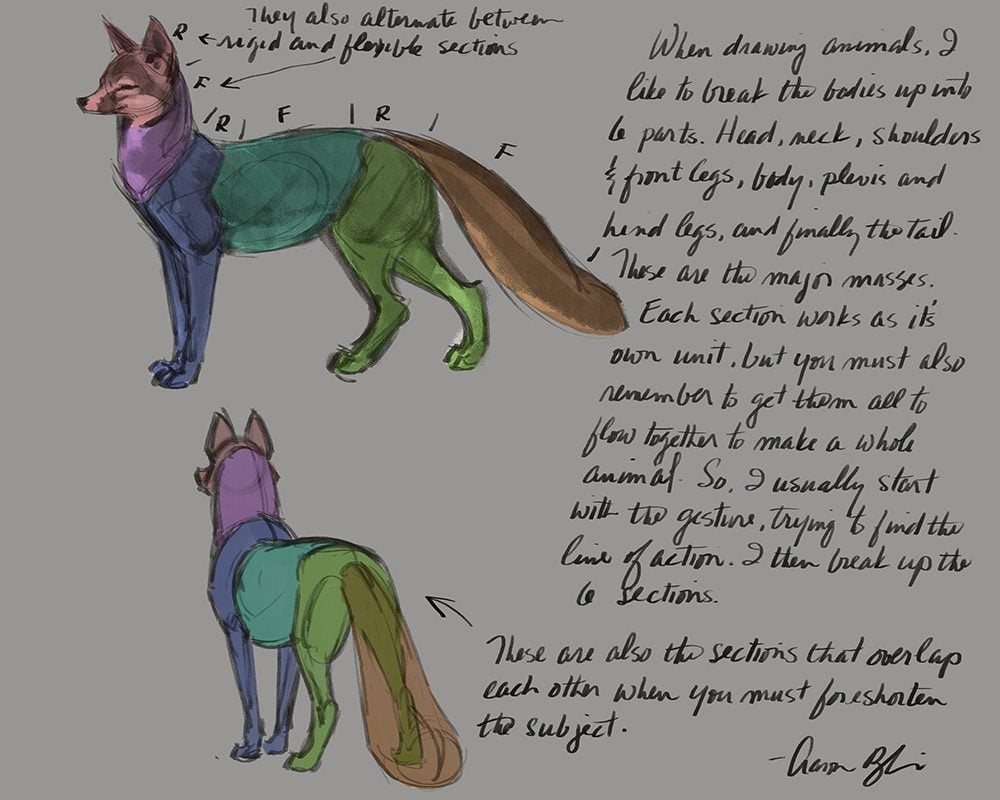 They also alternate between
R ← rigid and flexible sections
F
R F R
F
When drawing animals, I
like to break the bodies up into
6 parts. Head, neck, shoulders
& front legs, body, plevis and
hind legs, and finally the tail.
These are the major masses.
Each section works as it's
own unit, but you must also
remember to get them all to
flow together to make a whole
animal. So, I usually start
with the gesture, trying to find the
line of action. I then break up the
6 sections.
These are also the sections that overlap
each other when you must foreshorten
the subject.
-Aaron